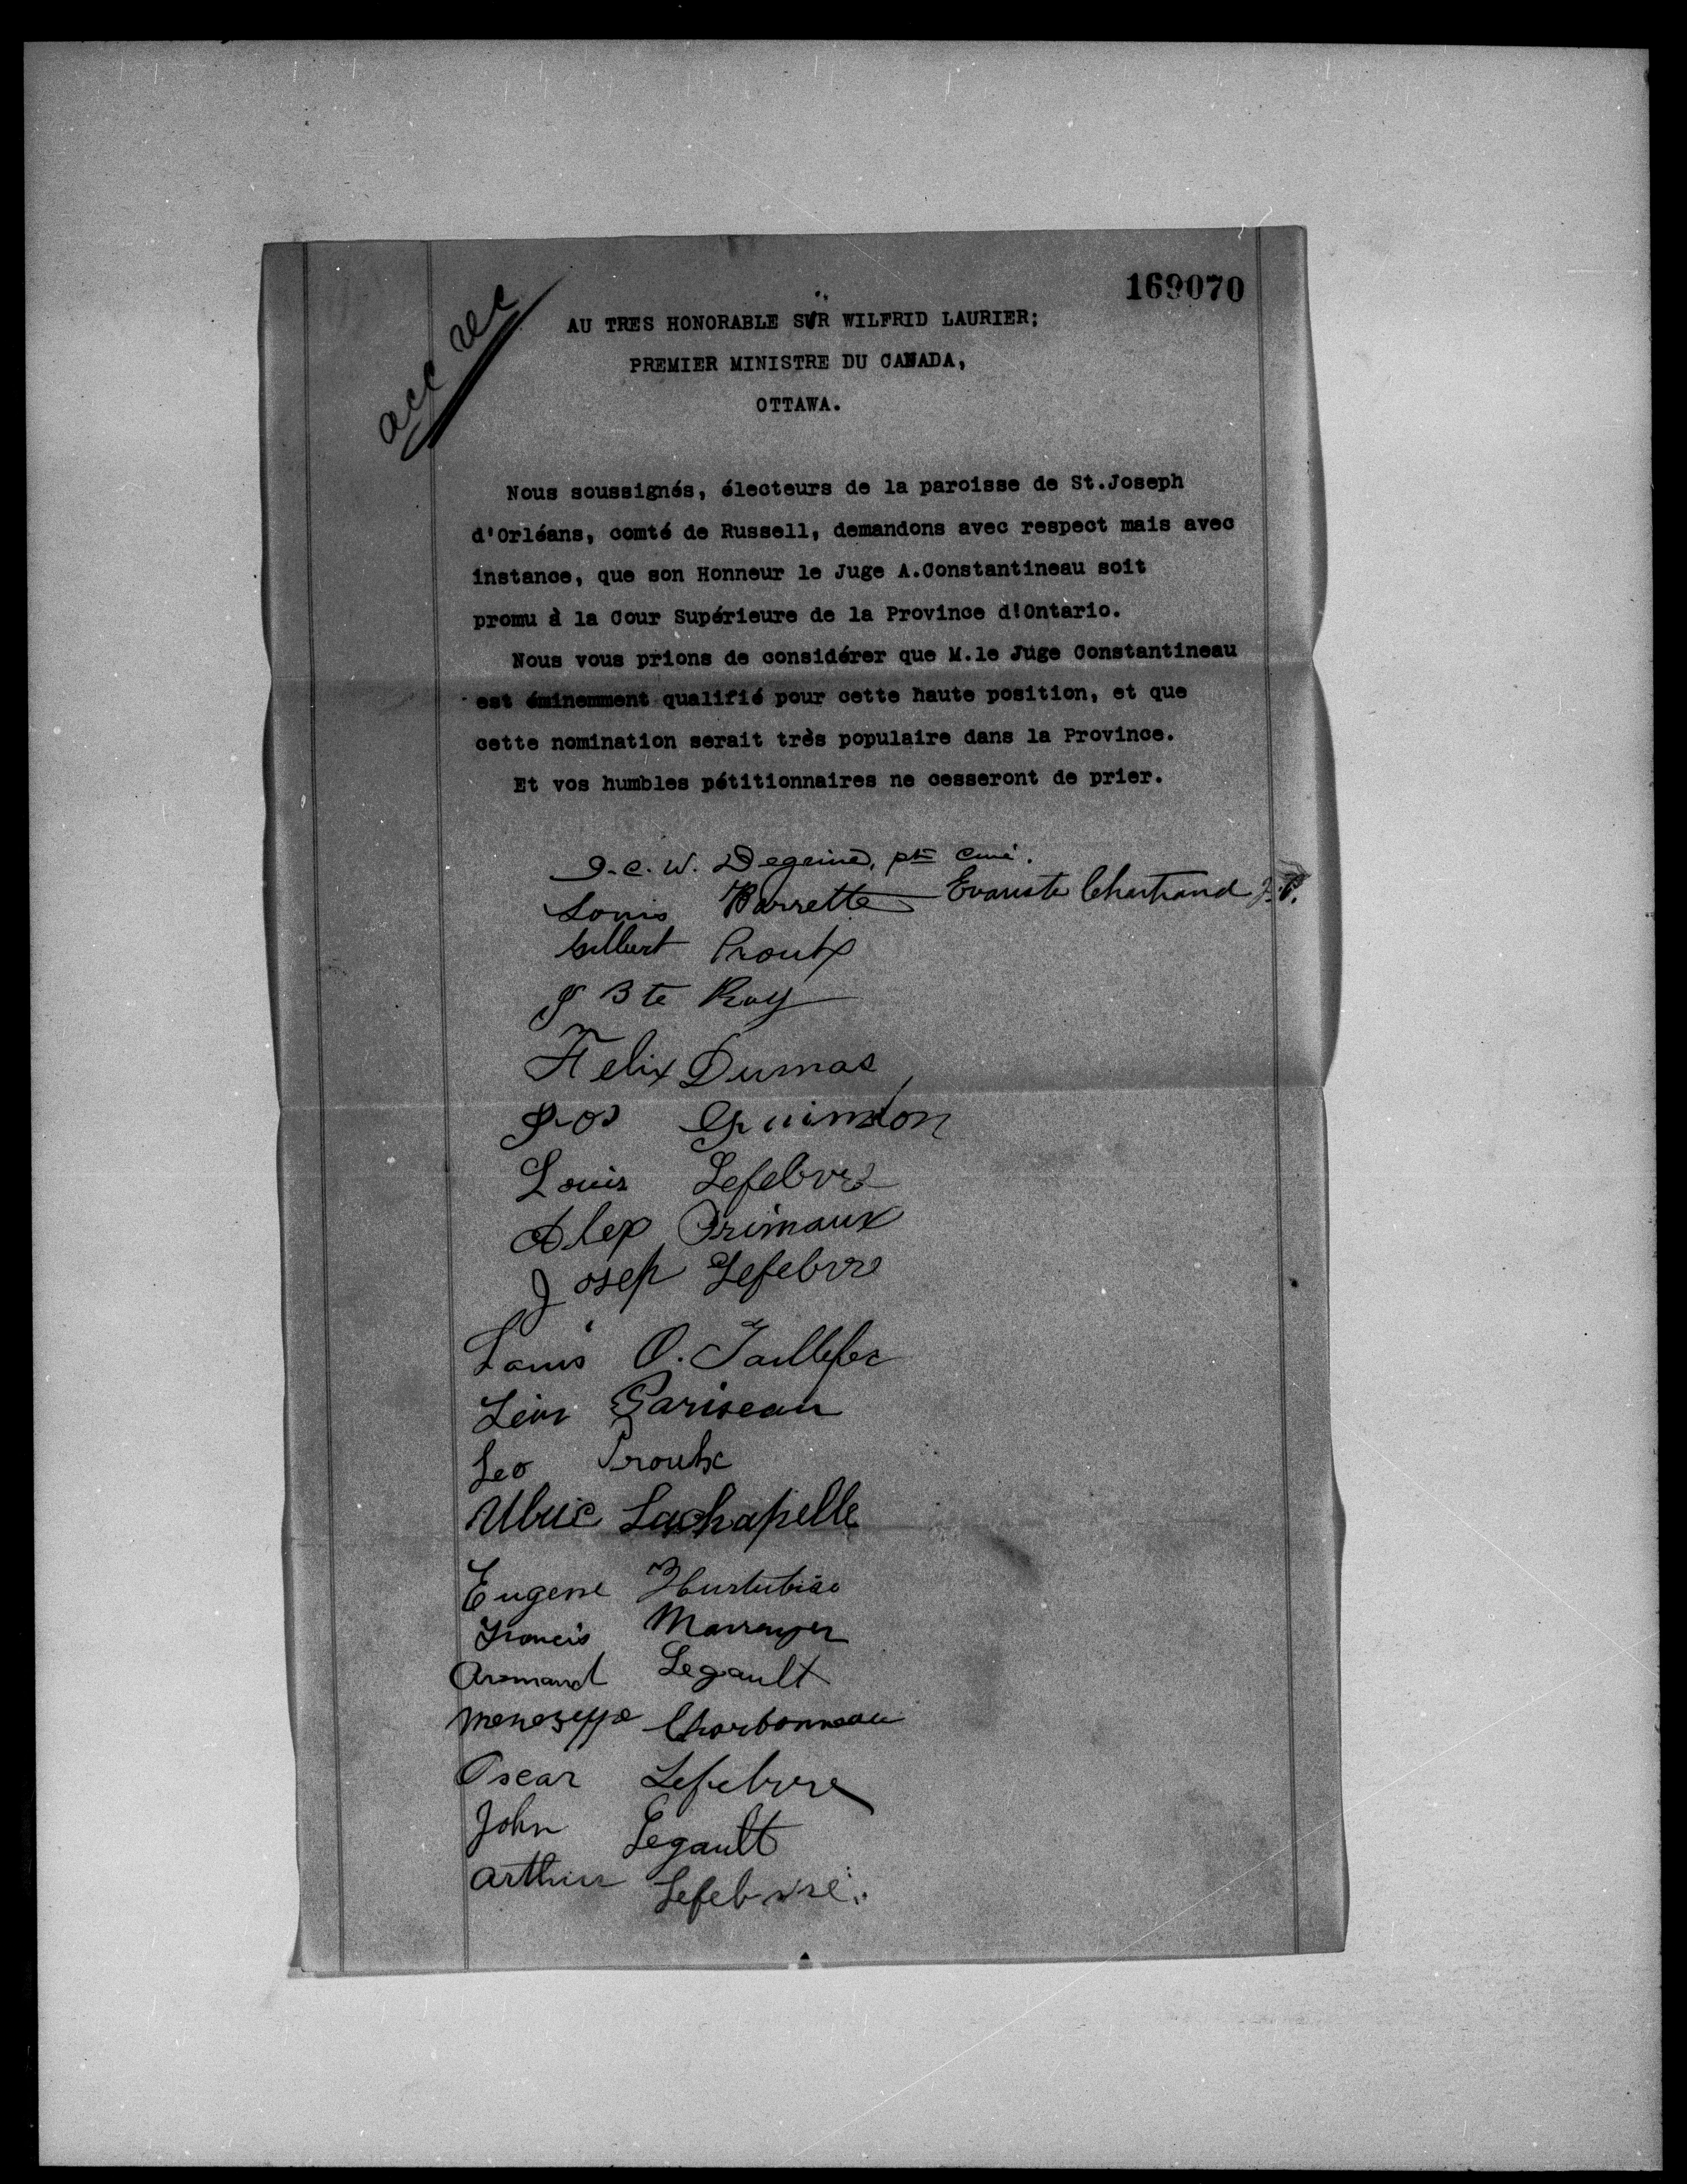 169070
acc rec
AU TRES HONORABLE SIR WILFRID LAURIER;
PREMIER MINISTRE DU CANADA,
OTTAWA.
Nous soussignés, électeurs de la paroisse de St.Joseph
d'Orléans, comté de Russell, demandons avec respect mais avec
instance, que son Honneur le Juge A.Constantineau soit
promu à la Cour Supérieure de la Province d'Ontario.
Nous vous prions de considérer que M.le Juge Constantineau
est éminemment qualifié pour cette haute position, et que
cette nomination serait très populaire dans la Province.
Et vos humbles pétitionnaires ne cesseront de prier.
W. ptre curé.
Louis Barrette Evariste Chartrand J.P.
Gilbert Proulx
J Bte Roy
Felix Dumas
Jos Guindon
Louis Lefebvre
Alex Primaux
Josep Lefebvre
Louis O. Taillefer
Léon Pariseau
Leo Proulx
Ulric Lachapelle
Eugene Hurtubise
Francis
Armand Legault
Charbonneau
Oscar Lefebvre
John Legault
Arthur Lefebvre